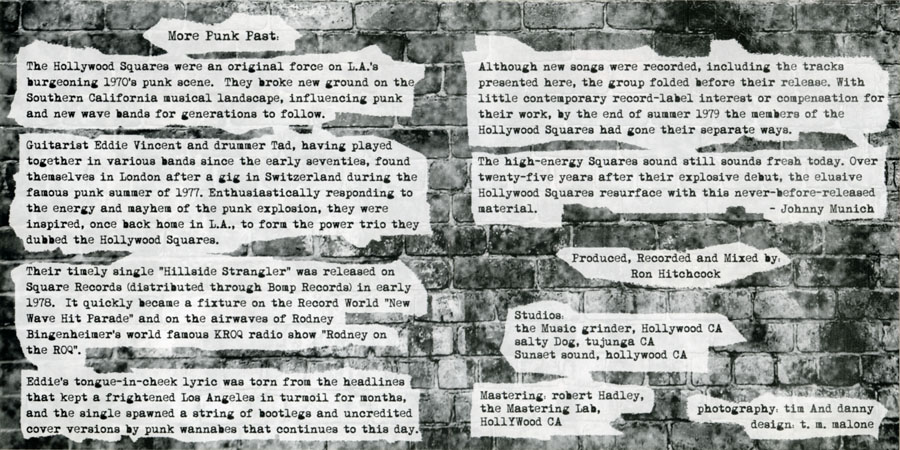 More Punk Past:
The Hollywood Squares were an original force on L.A.'s
burgeoning 1970's punk scene. They broke new ground on the
Southern California musical landscape, influencing punk
and new wave bands for generations to follow.
Guitarist Eddie Vincent and drummer Tad, having played
together in various bands since the early seventies, found
themselves in London after a gig in Switzerland during the
famous punk summer of 1977. Enthusiastically responding to
the energy and mayhem of the punk explosion, they were
inspired, once back home in L.A., to form the power trio they
dubbed the Hollywood Squares.
Their timely single "Hillside Strangler" was released on
Square Records (distributed through Bomp Records) in early
1978. It quickly became a fixture on the Record World "New
Wave Hit Parade" and on the airwaves of Rodney
Bingenheimer's world famous KROQ radio show "Rodney on
the ROQ".
Eddie's tongue-in-cheek lyric was torn from the headlines
that kept a frightened Los Angeles in turmoil for months,
and the single spawned a string of bootlegs and uncredited
cover versions by punk wannabes that continues to this day.
Although new songs were recorded, including the tracks
presented here, the group folded before their release. With
little contemporary record-label interest or compensation for
their work, by the end of summer 1979 the members of the
Hollywood Squares had gone their separate ways.
The high-energy Squares sound still sounds fresh today. Over
twenty-five years after their explosive debut, the elusive
Hollywood Squares resurface with this never-before-released
material. - Johnny Munich
Produced, Recorded and Mixed by:
Ron Hitchcock
Studios:
the Music grinder, Hollywood CA
salty Dog, tujunga CA
Sunset sound, hollywood CA
Mastering: robert Hadley,
the Mastering Lab,
HollYWood CA
photography: tim And danny
design: t. m. malone